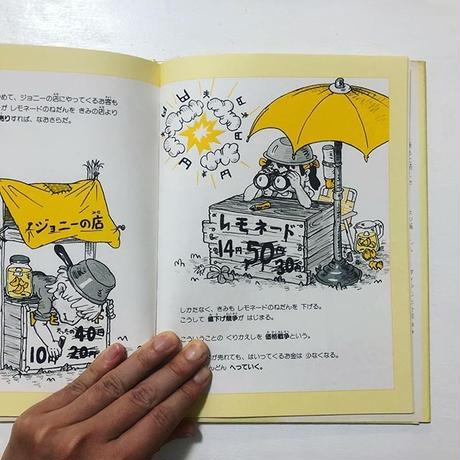 めて、ジョニーの店にやってくるお客も
が レモネードのねだんを きみの店より
売りすれば、なおさらだ。
ジョニーの店
たったの 40円
10円 20円
円
レモネード
14円 50円
30円
しかたなく、きみも レモネードのねだんを 下げる。
こうして 値下げ競争が はじまる。
こういうことの くりかえしを 価格戦争という。
が売れても、はいってくるお金は 少なくなる。
んどん へっていく。